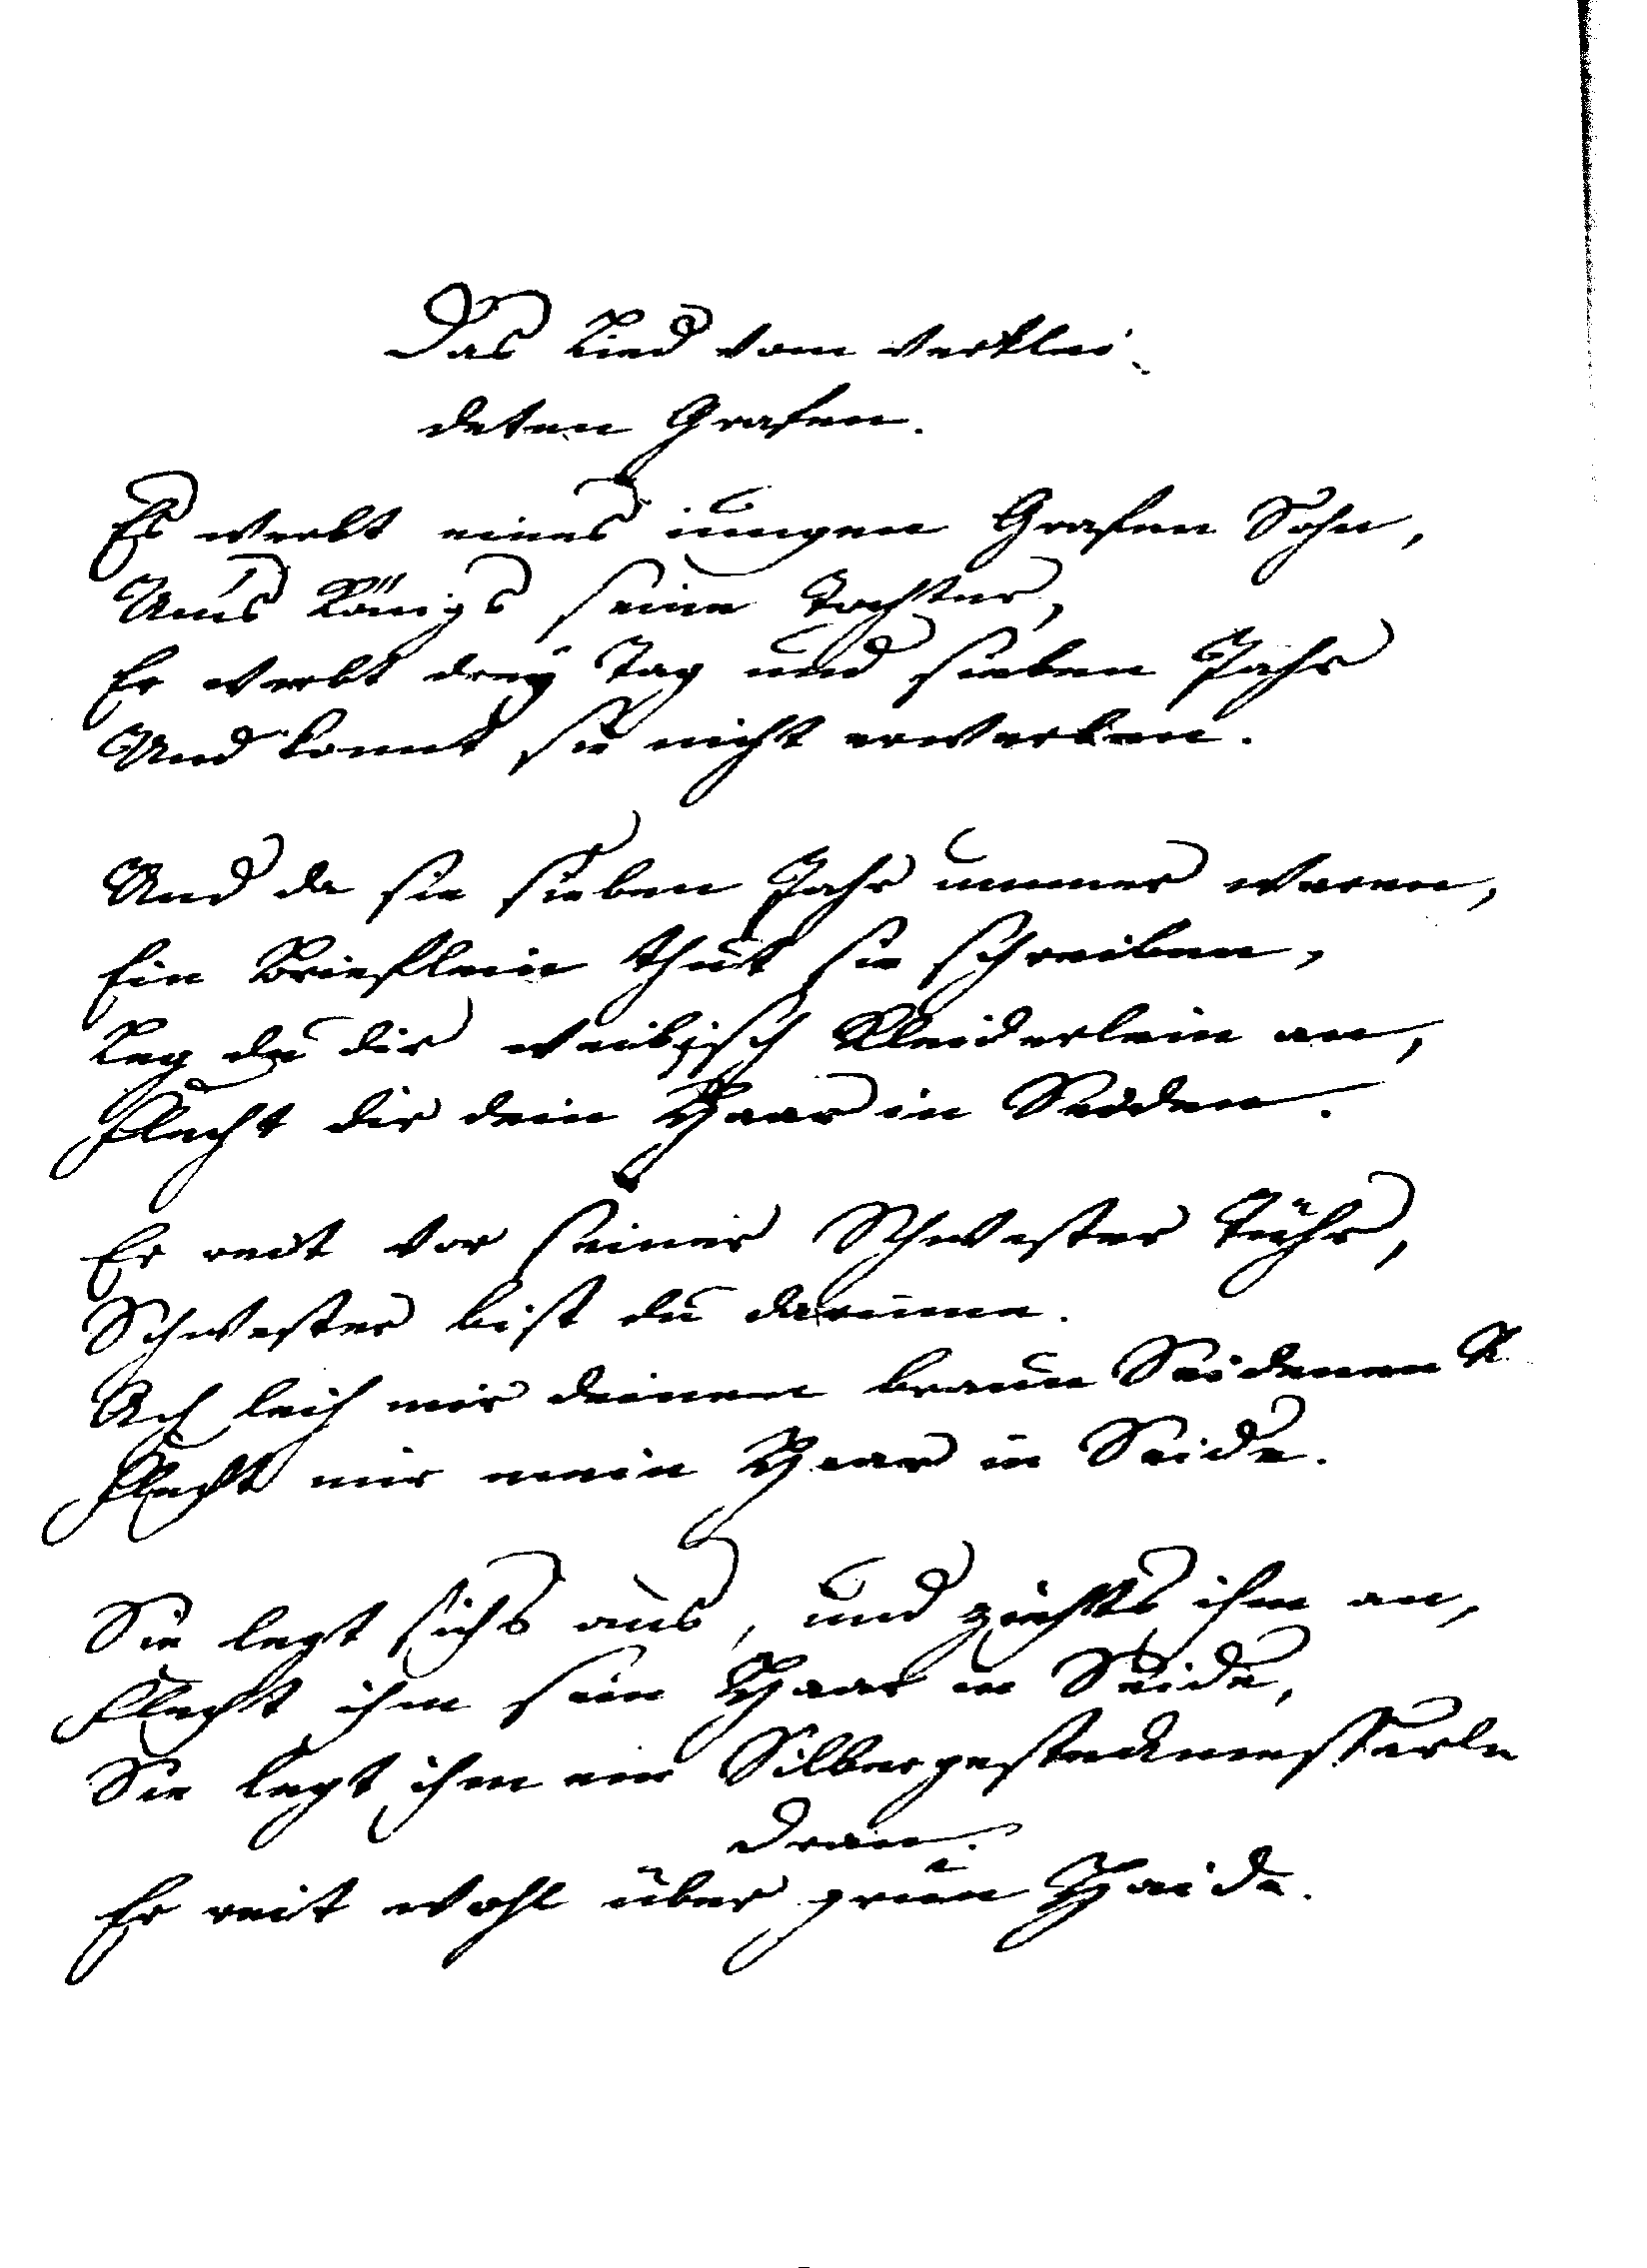 Das Lied vom verklei-
deten Grafen.
Es werbt eines iungen Grafen Sohn,
Um's Königs seine Tochter,
Er werbt drey Tag und sieben Jahr
Und konnt sie nicht erwerben.
Und da die sieben Jahr ummer waren,
Ein Brieflein thut sie schreiben,
Leg du dir weibisch Kleiderlein an,
Flecht dir dein Haar in Seiden.
Er reit vor seiner Schwester Tühr,
Schwester bist du darinne.
Ach leih mir deinen braun Seidenen R.
Flecht mir mein Haar in Seide.
Sie legt sichs aus, und ziehts ihm an,
Flecht ihm sein Haar in Seide,
Sie legt ihm ein Silbergesteckmesserle
dran.
Er reit wohl über grün Haide.